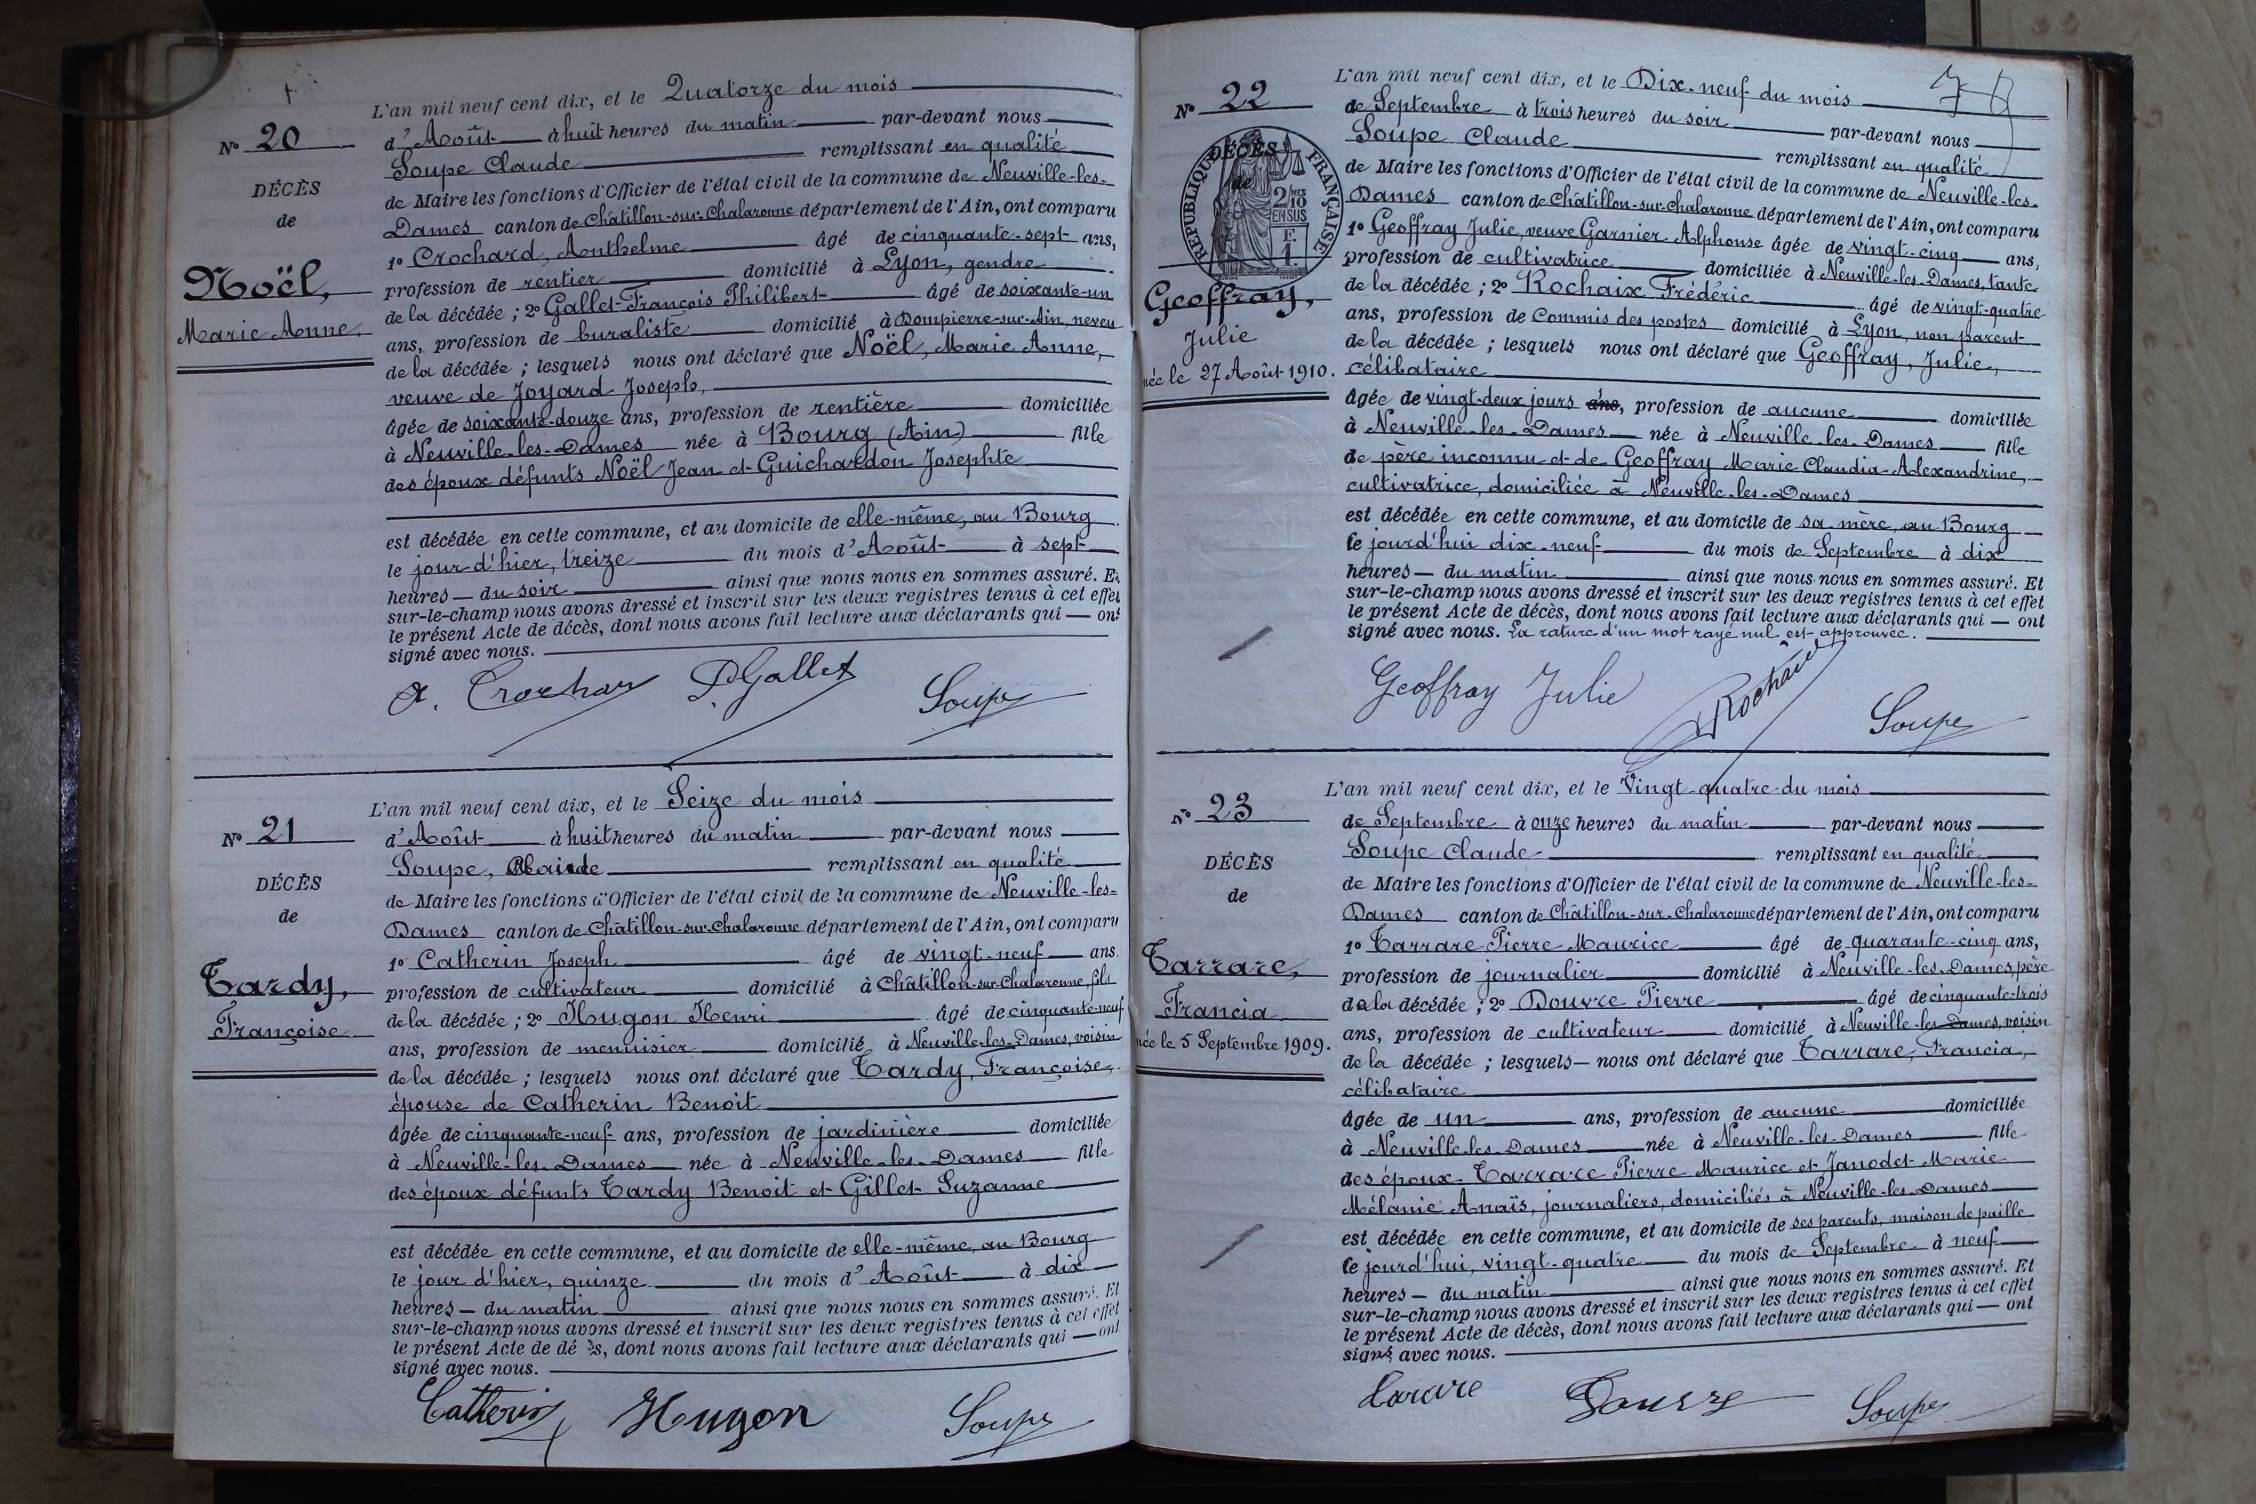 L'an mil neuf cent dix, et le Quatorze du mois
N° 20
d'Août à huit heures du matin par-devant nous
Soupe Claude remplissant en qualité
DÉCÈS
de Maire les fonctions d'Officier de l'état civil de la commune de Neuville-les-
de
Dames canton de Châtillon-sur-Chalaronne département de l'Ain, ont comparu
1° Crochard, Anthelme âgé de cinquante-sept ans,
Noël,
profession de rentier domicilié à Lyon, gendre
de la décédée ; 2° Gallet François Philibert âgé de soixante-un
Marie Anne
ans, profession de buraliste domicilié à Dompierre-sur-Ain, neveu
de la décédée ; lesquels nous ont déclaré que Noël, Marie Anne,
veuve de Joyard Joseph,
âgée de soixante-douze ans, profession de rentière domiciliée
à Neuville-les-Dames née à Bourg (Ain) fille
des époux défunts Noël Jean et Guichardon Josephte
est décédée en cette commune, et au domicile de elle-même, au Bourg
le jour d'hier, treize du mois d'Août à sept
heures — du soir ainsi que nous nous en sommes assuré. Et
sur-le-champ nous avons dressé et inscrit sur les deux registres tenus à cet effet
le présent Acte de décès, dont nous avons fait lecture aux déclarants qui — ont
signé avec nous.
A. Crochar P. Gallet Soupe
L'an mil neuf cent dix, et le Seize du mois
N° 21
d'Août à huit heures du matin par-devant nous
Soupe, Claude remplissant en qualité
DÉCÈS
de Maire les fonctions d'Officier de l'état civil de la commune de Neuville-les-
de
Dames canton de Châtillon-sur-Chalaronne département de l'Ain, ont comparu
1° Catherin Joseph âgé de vingt-neuf ans
Tardy,
profession de cultivateur domicilié à Châtillon-sur-Chalaronne, fils
Françoise
de la décédée ; 2° Hugon Henri âgé de cinquante-neuf
ans, profession de menuisier domicilié à Neuville-les-Dames, voisin
de la décédée ; lesquels nous ont déclaré que Tardy, Françoise,
épouse de Catherin Benoit
âgée de cinquante-neuf ans, profession de jardinière domiciliée
à Neuville-les-Dames née à Neuville-les-Dames fille
des époux défunts Tardy Benoit et Gillet Suzanne
est décédée en cette commune, et au domicile de elle-même, au Bourg
le jour d'hier, quinze du mois d'Août à dix
heures — du matin ainsi que nous nous en sommes assuré. Et
sur-le-champ nous avons dressé et inscrit sur les deux registres tenus à cet effet
le présent Acte de décès, dont nous avons fait lecture aux déclarants qui — ont
signé avec nous.
Catherin Hugon Soupe
L'an mil neuf cent dix, et le Dix-neuf du mois
N° 22
de Septembre à trois heures du soir par-devant nous
DÉCÈS
Soupe Claude remplissant en qualité
de
RÉPUBLIQUE FRANÇAISE
2/10 MES
EN SUS
F.
1.
de Maire les fonctions d'Officier de l'état civil de la commune de Neuville-les-
Dames canton de Châtillon-sur-Chalaronne département de l'Ain, ont comparu
1° Geoffray Julie, veuve Garnier Alphonse âgée de vingt-cinq ans,
profession de cultivatrice domiciliée à Neuville-les-Dames, tante
Geoffray,
de la décédée ; 2° Rochaix Frédéric âgé de vingt-quatre
Julie
ans, profession de Commis des postes domicilié à Lyon, non parent
de la décédée ; lesquels nous ont déclaré que Geoffray, Julie,
née le 27 Août 1910.
célibataire
âgée de vingt-deux jours ans, profession de aucune domiciliée
à Neuville-les-Dames née à Neuville-les-Dames fille
de père inconnu et de Geoffray Marie Claudia Alexandrine,
cultivatrice, domiciliée à Neuville-les-Dames
est décédée en cette commune, et au domicile de sa mère, au Bourg
le jourd'hui dix-neuf du mois de Septembre à dix
heures — du matin ainsi que nous nous en sommes assuré. Et
sur-le-champ nous avons dressé et inscrit sur les deux registres tenus à cet effet
le présent Acte de décès, dont nous avons fait lecture aux déclarants qui — ont
signé avec nous. La rature d'un mot rayé nul est approuvée.
Geoffray Julie Rochaix Soupe
L'an mil neuf cent dix, et le Vingt-quatre du mois
N° 23
de Septembre à onze heures du matin par-devant nous
Soupe Claude remplissant en qualité
DÉCÈS
de Maire les fonctions d'Officier de l'état civil de la commune de Neuville-les-
de
Dames canton de Châtillon-sur-Chalaronne département de l'Ain, ont comparu
1° Tarrare Pierre Maurice âgé de quarante-cinq ans,
Tarrare,
profession de journalier domicilié à Neuville-les-Dames, père
Francia
de la décédée ; 2° Douvre Pierre âgé de cinquante-trois
ans, profession de cultivateur domicilié à Neuville-les-Dames, voisin
née le 5 Septembre 1909.
de la décédée ; lesquels — nous ont déclaré que Tarrare, Francia,
célibataire
âgée de un ans, profession de aucune domiciliée
à Neuville-les-Dames née à Neuville-les-Dames fille
des époux Tarrare Pierre Maurice et Janodet Marie
Mélanie Anaïs, journaliers, domiciliés à Neuville-les-Dames
est décédée en cette commune, et au domicile de ses parents, maison de paille
le jourd'hui, vingt-quatre du mois de Septembre à neuf
heures — du matin ainsi que nous nous en sommes assuré. Et
sur-le-champ nous avons dressé et inscrit sur les deux registres tenus à cet effet
le présent Acte de décès, dont nous avons fait lecture aux déclarants qui — ont
signé avec nous.
Tarare Soupe